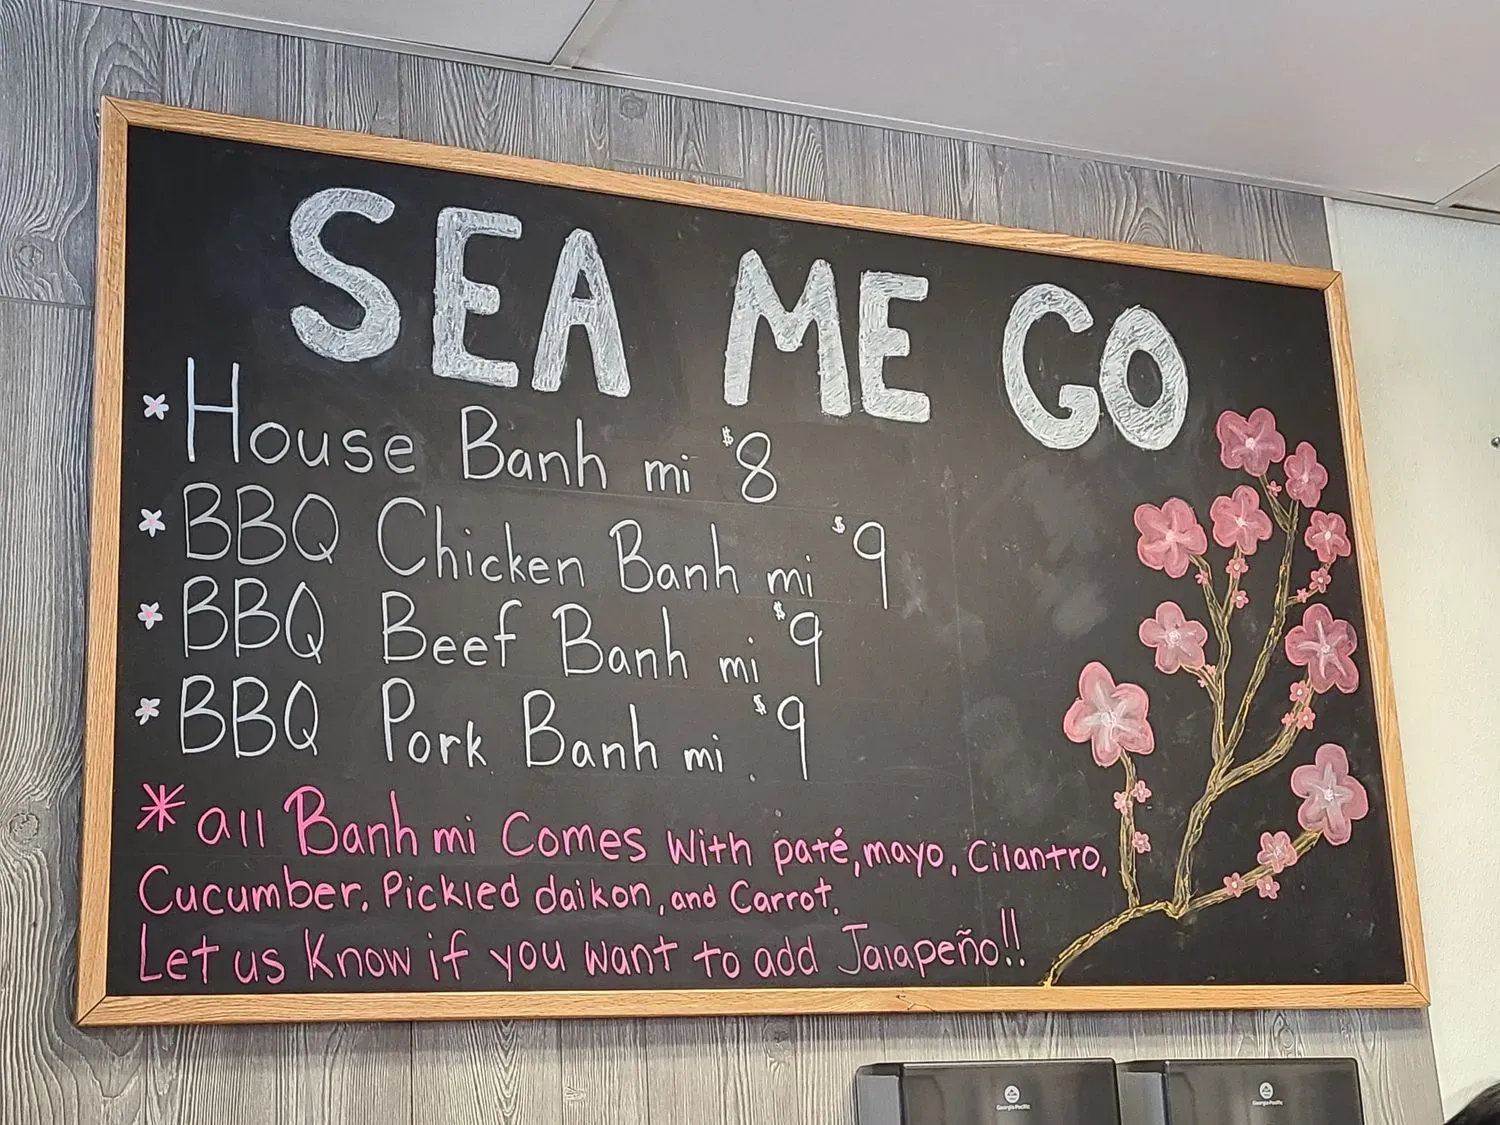 SEA ME GO
* House Banh mi $8
* BBQ Chicken Banh mi $9
* BBQ Beef Banh mi $9
* BBQ Pork Banh mi $9
* all Banh mi Comes With paté, mayo, Cilantro,
Cucumber, Pickled daikon, and Carrot.
Let us Know if you want to add Jalapeño!!
Georgia-Pacific
Georgia-Pacific